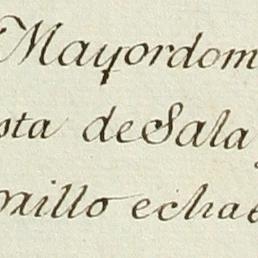 Mayordom
sta de Sala
millo echa